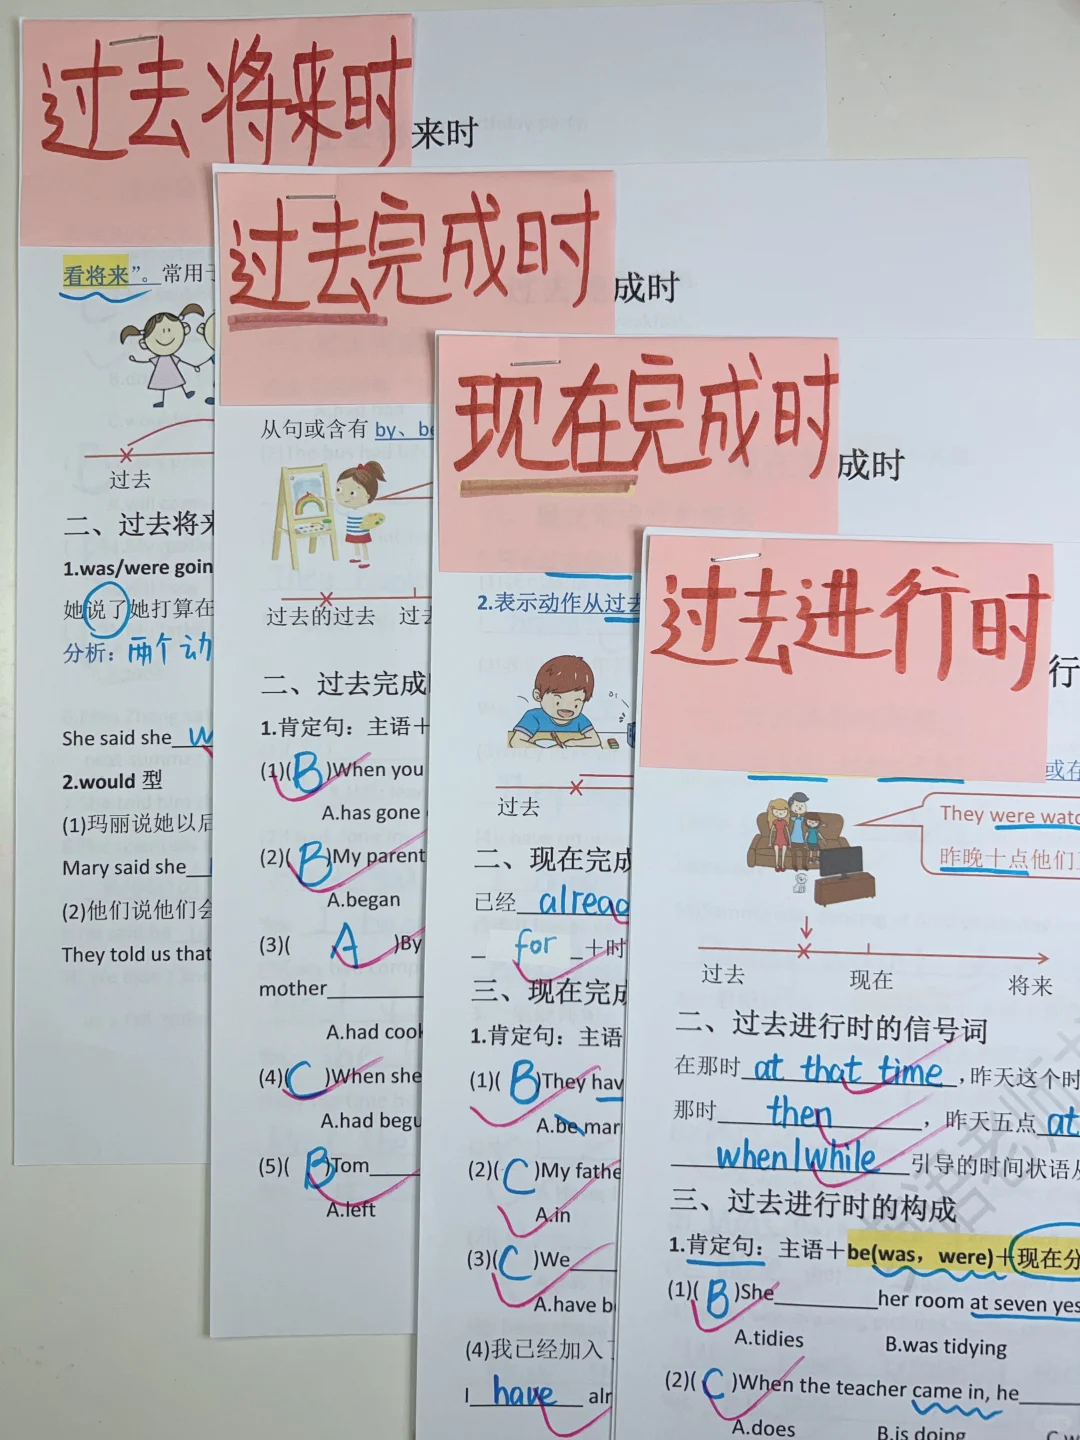 过去将来时
来时
看将来”。常用于
过去
二、过去将来
1.was/were goin
她说了她打算在
分析：两个动
She said she
2.would 型
(1)玛丽说她以后
Mary said she
(2)他们说他们会
They told us that
过去完成时
成时
从句或含有 by、be
过去的过去 过去
二、过去完成
1.肯定句：主语＋
(1)(B)When you
A.has gone
(2)(B)My parent
A.began
(3)(A)By
mother
A.had cook
(4)(C)When she
A.had begu
(5)(B)Tom
A.left
现在完成时
成时
2.表示动作从过去
过去
二、现在完成
已经 alread
for ＋时
三、现在完成
1.肯定句：主语
(1)(B)They hav
A.be mar
(2)(C)My fathe
A.in
(3)(C)We
A.have b
(4)我已经加入
I have alr
过去进行时
行
或在
They were watc
昨晚十点他们
过去 现在 将来
二、过去进行时的信号词
在那时 at that time ，昨天这个时
那时 then ，昨天五点 at
when/while 引导的时间状语从
三、过去进行时的构成
1.肯定句：主语＋be(was，were)＋现在分
(1)(B)She her room at seven yes
A.tidies B.was tidying
(2)(C)When the teacher came in, he
A.does B.is doing C.w